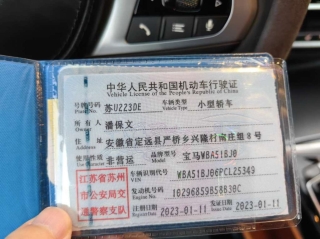 中华人民共和国机动车行驶证
Vehicle License of the People's Republic of China
号牌号码 苏U223DE 车辆类型 小型轿车
Plate No. Vehicle Type
所有人 潘保文
Owner
住址 安徽省定远县严桥乡兴隆行政村庄组8号
Address
使用性质 非营运 品牌型号 宝马WBA51BJ0
Model
江苏省苏州
市公安局交
通警察支队
车辆识别代号 WBA51BJ06PCL25349
VIN
发动机号码 10296859B58B30C
Engine No.
注册日期 2023-01-11 发证日期 2023-01-11
Register Date Issue Date